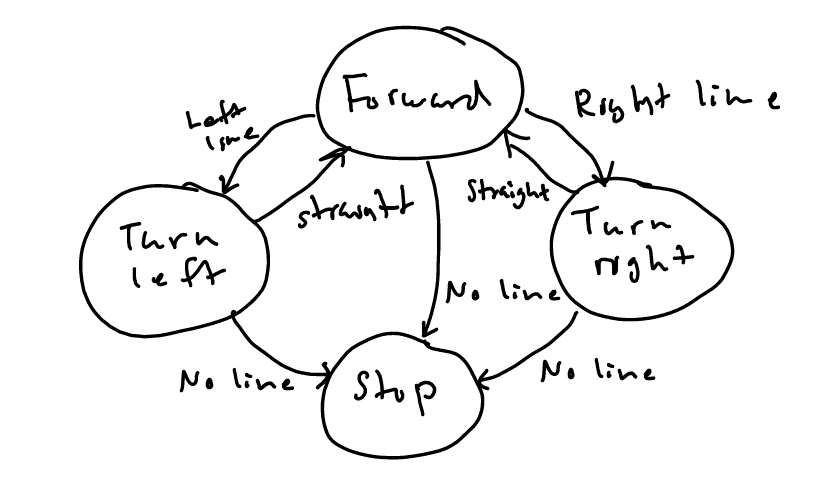 Forward
Left
line
Right line
straight
Straight
Turn
left
Turn
right
No line
No line
No line
Stop